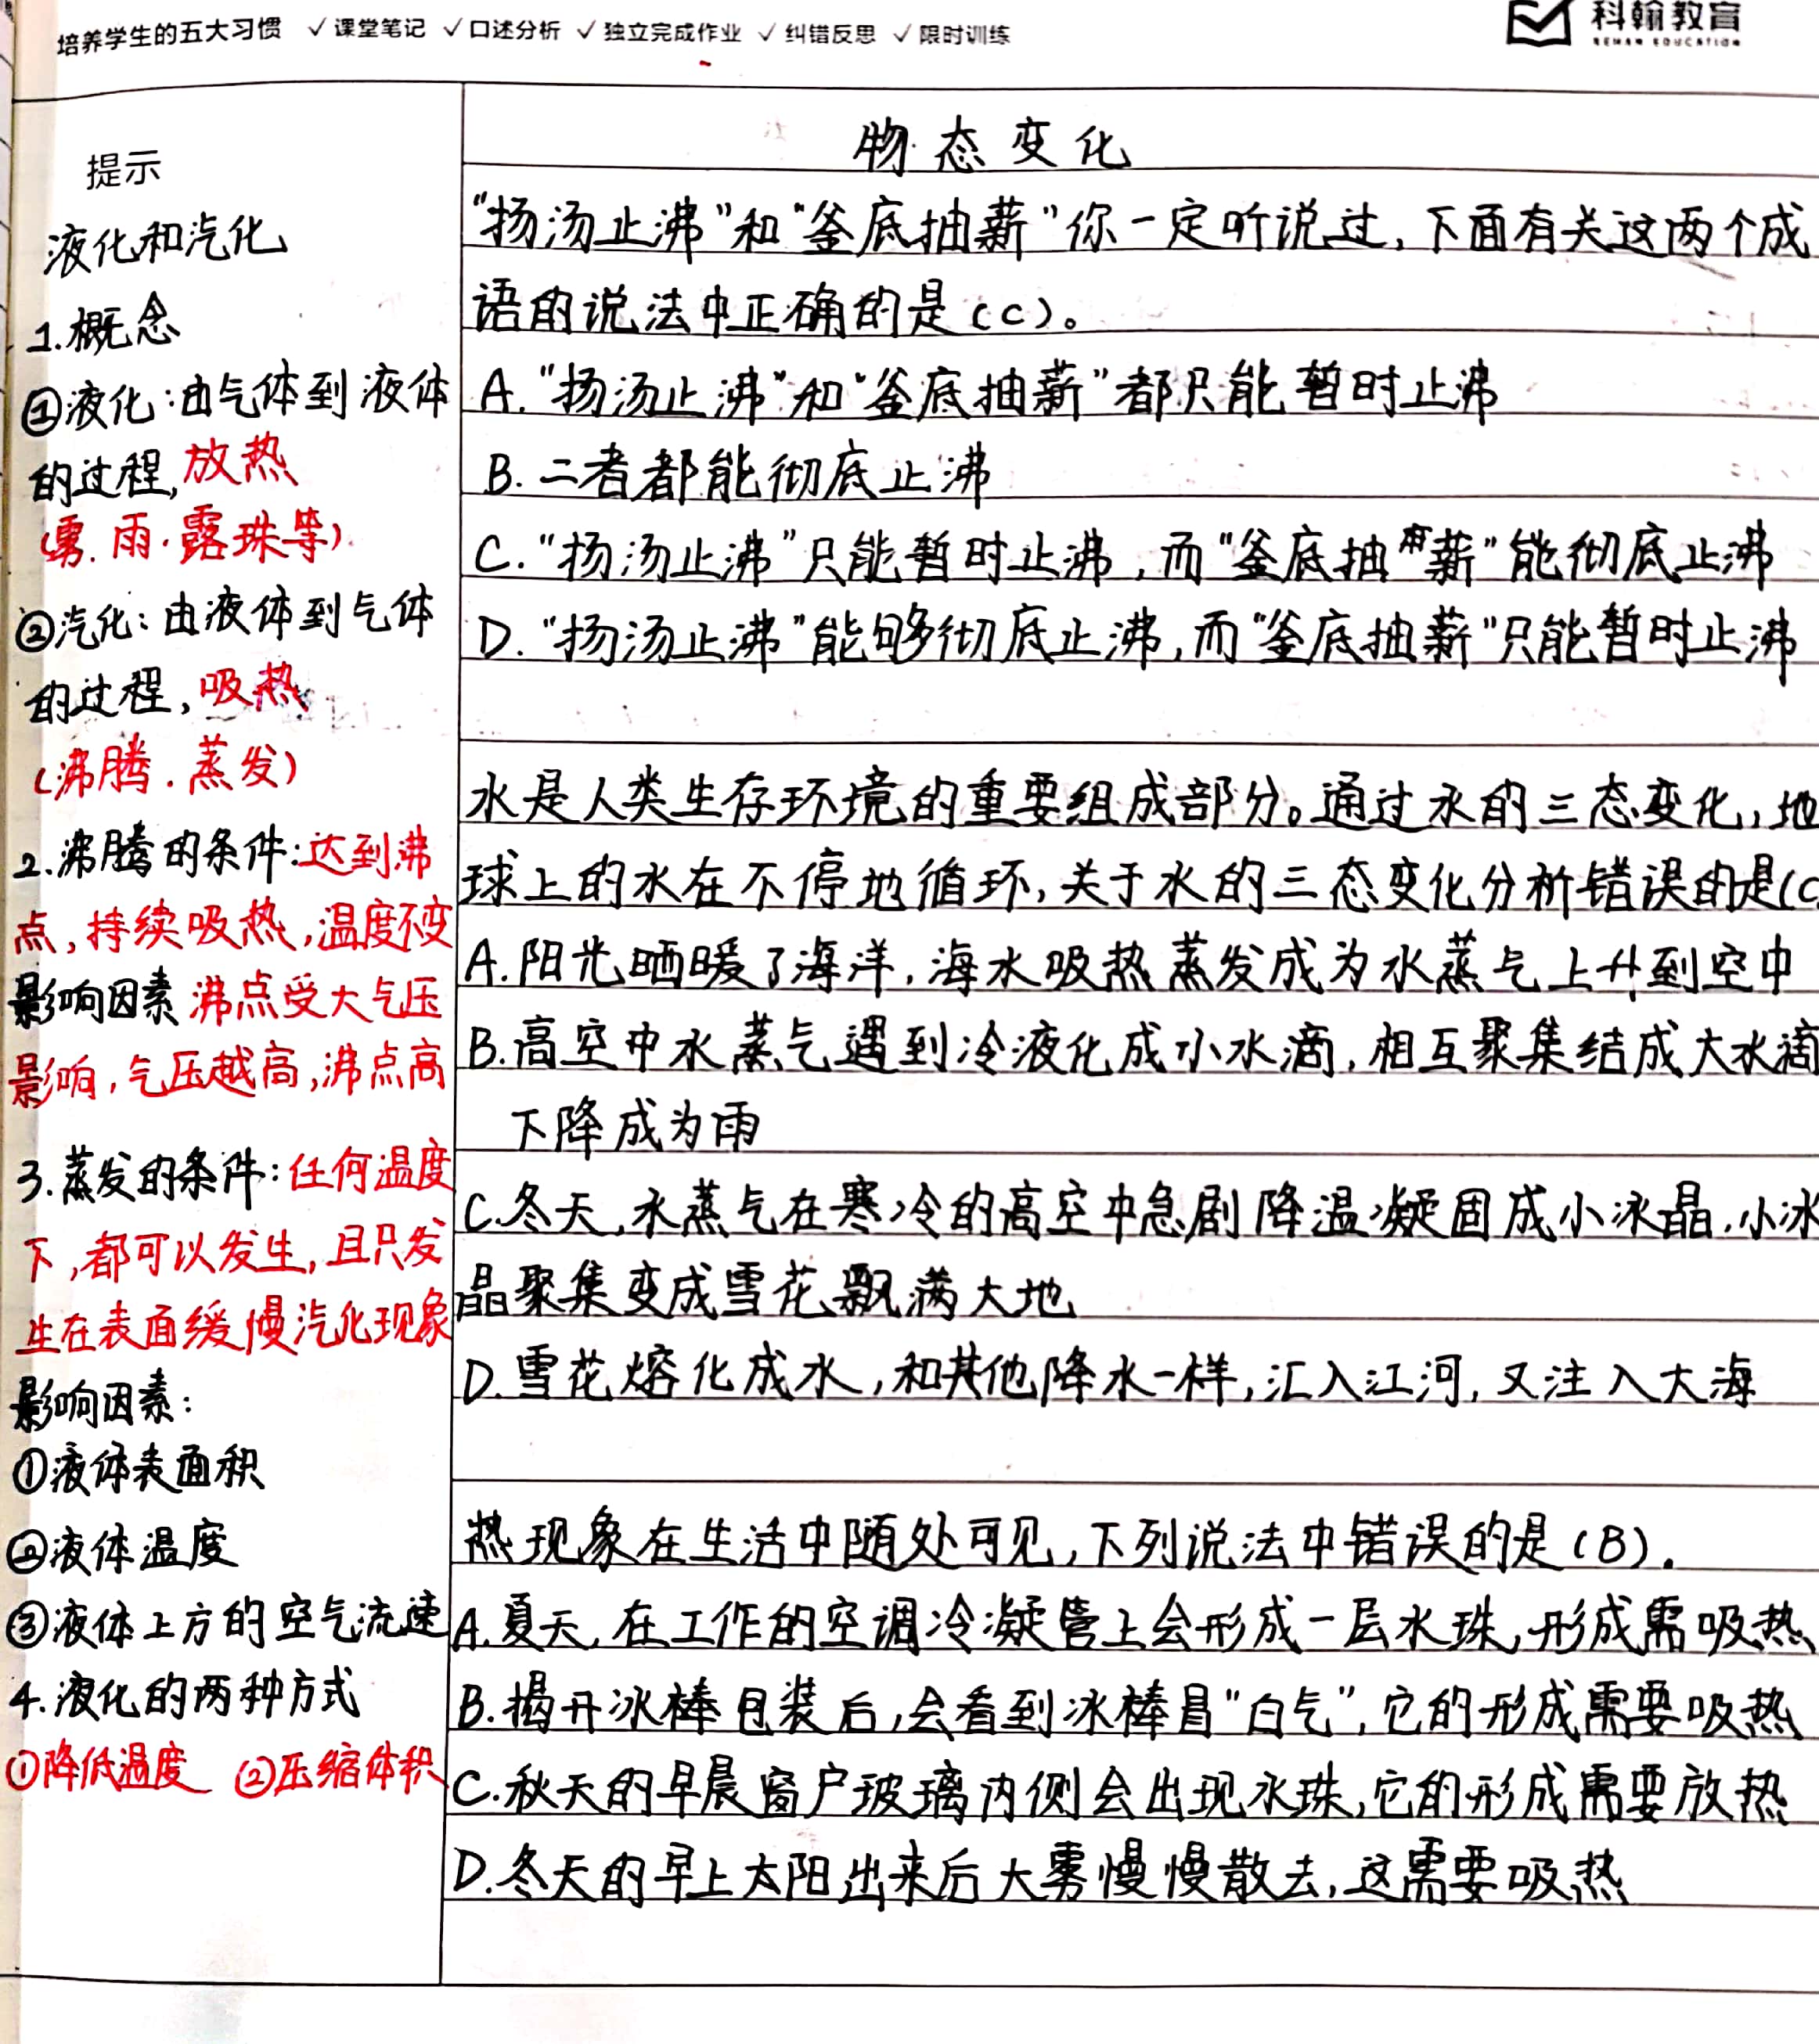 培养学生的五大习惯 ✓课堂笔记 ✓口述分析 ✓独立完成作业 ✓纠错反思 ✓限时训练
科翰教育
提示
液化和汽化
1.概念
①液化:由气体到液体
的过程,放热
(雾.雨.露珠等)
②汽化:由液体到气体
的过程,吸热
(沸腾.蒸发)
2.沸腾的条件:达到沸
点,持续吸热,温度不变
影响因素 沸点受大气压
影响,气压越高,沸点高
3.蒸发的条件:任何温度
下,都可以发生,且只发
生在表面缓慢汽化现象
影响因素:
①液体表面积
②液体温度
③液体上方的空气流速
4.液化的两种方式
①降低温度 ②压缩体积
物态变化
“扬汤止沸”和“釜底抽薪”你一定听说过,下面有关这两个成
语的说法中正确的是(C)。
A.“扬汤止沸”和“釜底抽薪”都只能暂时止沸
B.二者都能彻底止沸
C.“扬汤止沸”只能暂时止沸,而“釜底抽薪”能彻底止沸
D.“扬汤止沸”能够彻底止沸,而“釜底抽薪”只能暂时止沸
水是人类生存环境的重要组成部分。通过水的三态变化,地
球上的水在不停地循环,关于水的三态变化分析错误的是(C
A.阳光晒暖了海洋,海水吸热蒸发成为水蒸气上升到空中
B.高空中水蒸气遇到冷液化成小水滴,相互聚集结成大水滴
下降成为雨
C.冬天,水蒸气在寒冷的高空中急剧降温凝固成小冰晶,小冰
晶聚集变成雪花飘满大地
D.雪花熔化成水,和其他降水一样,汇入江河,又注入大海
热现象在生活中随处可见,下列说法中错误的是(B).
A.夏天,在工作的空调冷凝管上会形成一层水珠,形成需吸热
B.揭开冰棒包装后,会看到冰棒冒“白气”,它的形成需要吸热
C.秋天的早晨窗户玻璃内侧会出现水珠,它的形成需要放热
D.冬天的早上太阳出来后大雾慢慢散去,这需要吸热